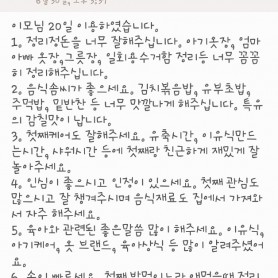 이모님 20일 이용하였습니다.
1. 정리정돈을 너무 잘해주십니다. 아기옷장, 엄마
아빠 옷장,그릇장, 일회용수거함 정리등 너무 꼼꼼
히 정리해주십니다.
2. 음식솜씨가 좋으세요. 김치볶음밥, 유부초밥,
주먹밥, 밑반찬 등 너무 맛깔나게 해주십니다. 특유
의 감칠맛이 납니다.
3. 첫째케어도 잘해주세요. 유축시간, 이유식만드
는시간, 샤워시간 등에 첫째랑 친근하게 재밌게 잘
놀아주세요.
4. 인심이 좋으시고 인정이 있으세요. 첫째 관심도
많으시고 잘 챙겨주시며 음식재료도 집에서 가져와
서 자주 해주세요.
5. 육아와 관련된 좋은말씀 많이 해주세요. 이유식,
아기케어, 옷 브랜드, 육아상식 등 많이 알려주셨어
요.